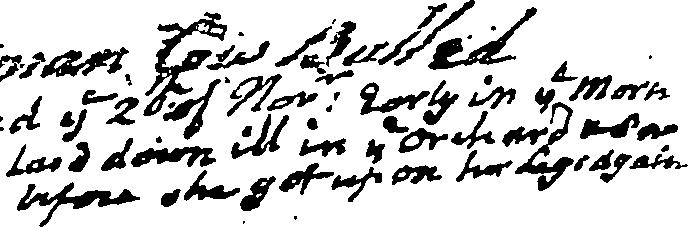 Cow Bulled
ed yᵉ 2ᵈ of Novʳ: Early in yᵉ Morn
laid down ill in yᵉ Orchard &
before she got up on her Legs again